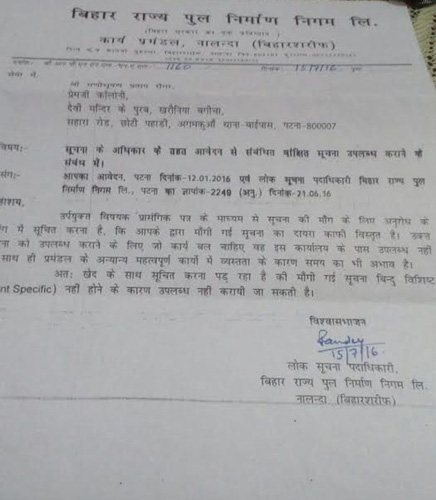 बिहार राज्य पुल निर्माण निगम लि.
कार्य प्रमंडल, नालन्दा (बिहारशरीफ)
1160 15/7/16
प्रेमजी कॉलोनी,
देवी मन्दिर के पुरब, खरौनिया बगीचा,
सहारा रोड, छोटी पहाड़ी, अगमकुआँ थाना-बाईपास, पटना-800007
सूचना के अधिकार के तहत आवेदन से संबंधित वांछित सूचना उपलब्ध कराने के
संबंध में।
आपका आवेदन, पटना दिनांक-12.01.2016 एवं लोक सूचना पदाधिकारी बिहार राज्य पुल
निर्माण निगम लि., पटना का ज्ञापांक-2249 (अनु.) दिनांक-21.06.16
उपर्युक्त विषयक प्रासंगिक पत्र के माध्यम से सूचना की माँग के लिए अनुरोध के
में सूचित करना है, कि आपके द्वारा माँगी गई सूचना का दायरा काफी विस्तृत है। उक्त
को उपलब्ध कराने के लिए जो कार्य बल चाहिए वह इस कार्यालय के पास उपलब्ध नहीं
साथ ही प्रमंडल के अन्यान्य महत्वपूर्ण कार्यो में व्यस्तता के कारण समय का भी अभाव है।
अतः खेद के साथ सूचित करना पड़ रहा है की माँगी गई सूचना बिन्दु विशिष्ट
nt Specific) नहीं होने के कारण उपलब्ध नहीं करायी जा सकती है।
विश्वासभाजन
15/7/16
लोक सूचना पदाधिकारी,
बिहार राज्य पुल निर्माण निगम लि.
नालन्दा (बिहारशरीफ)